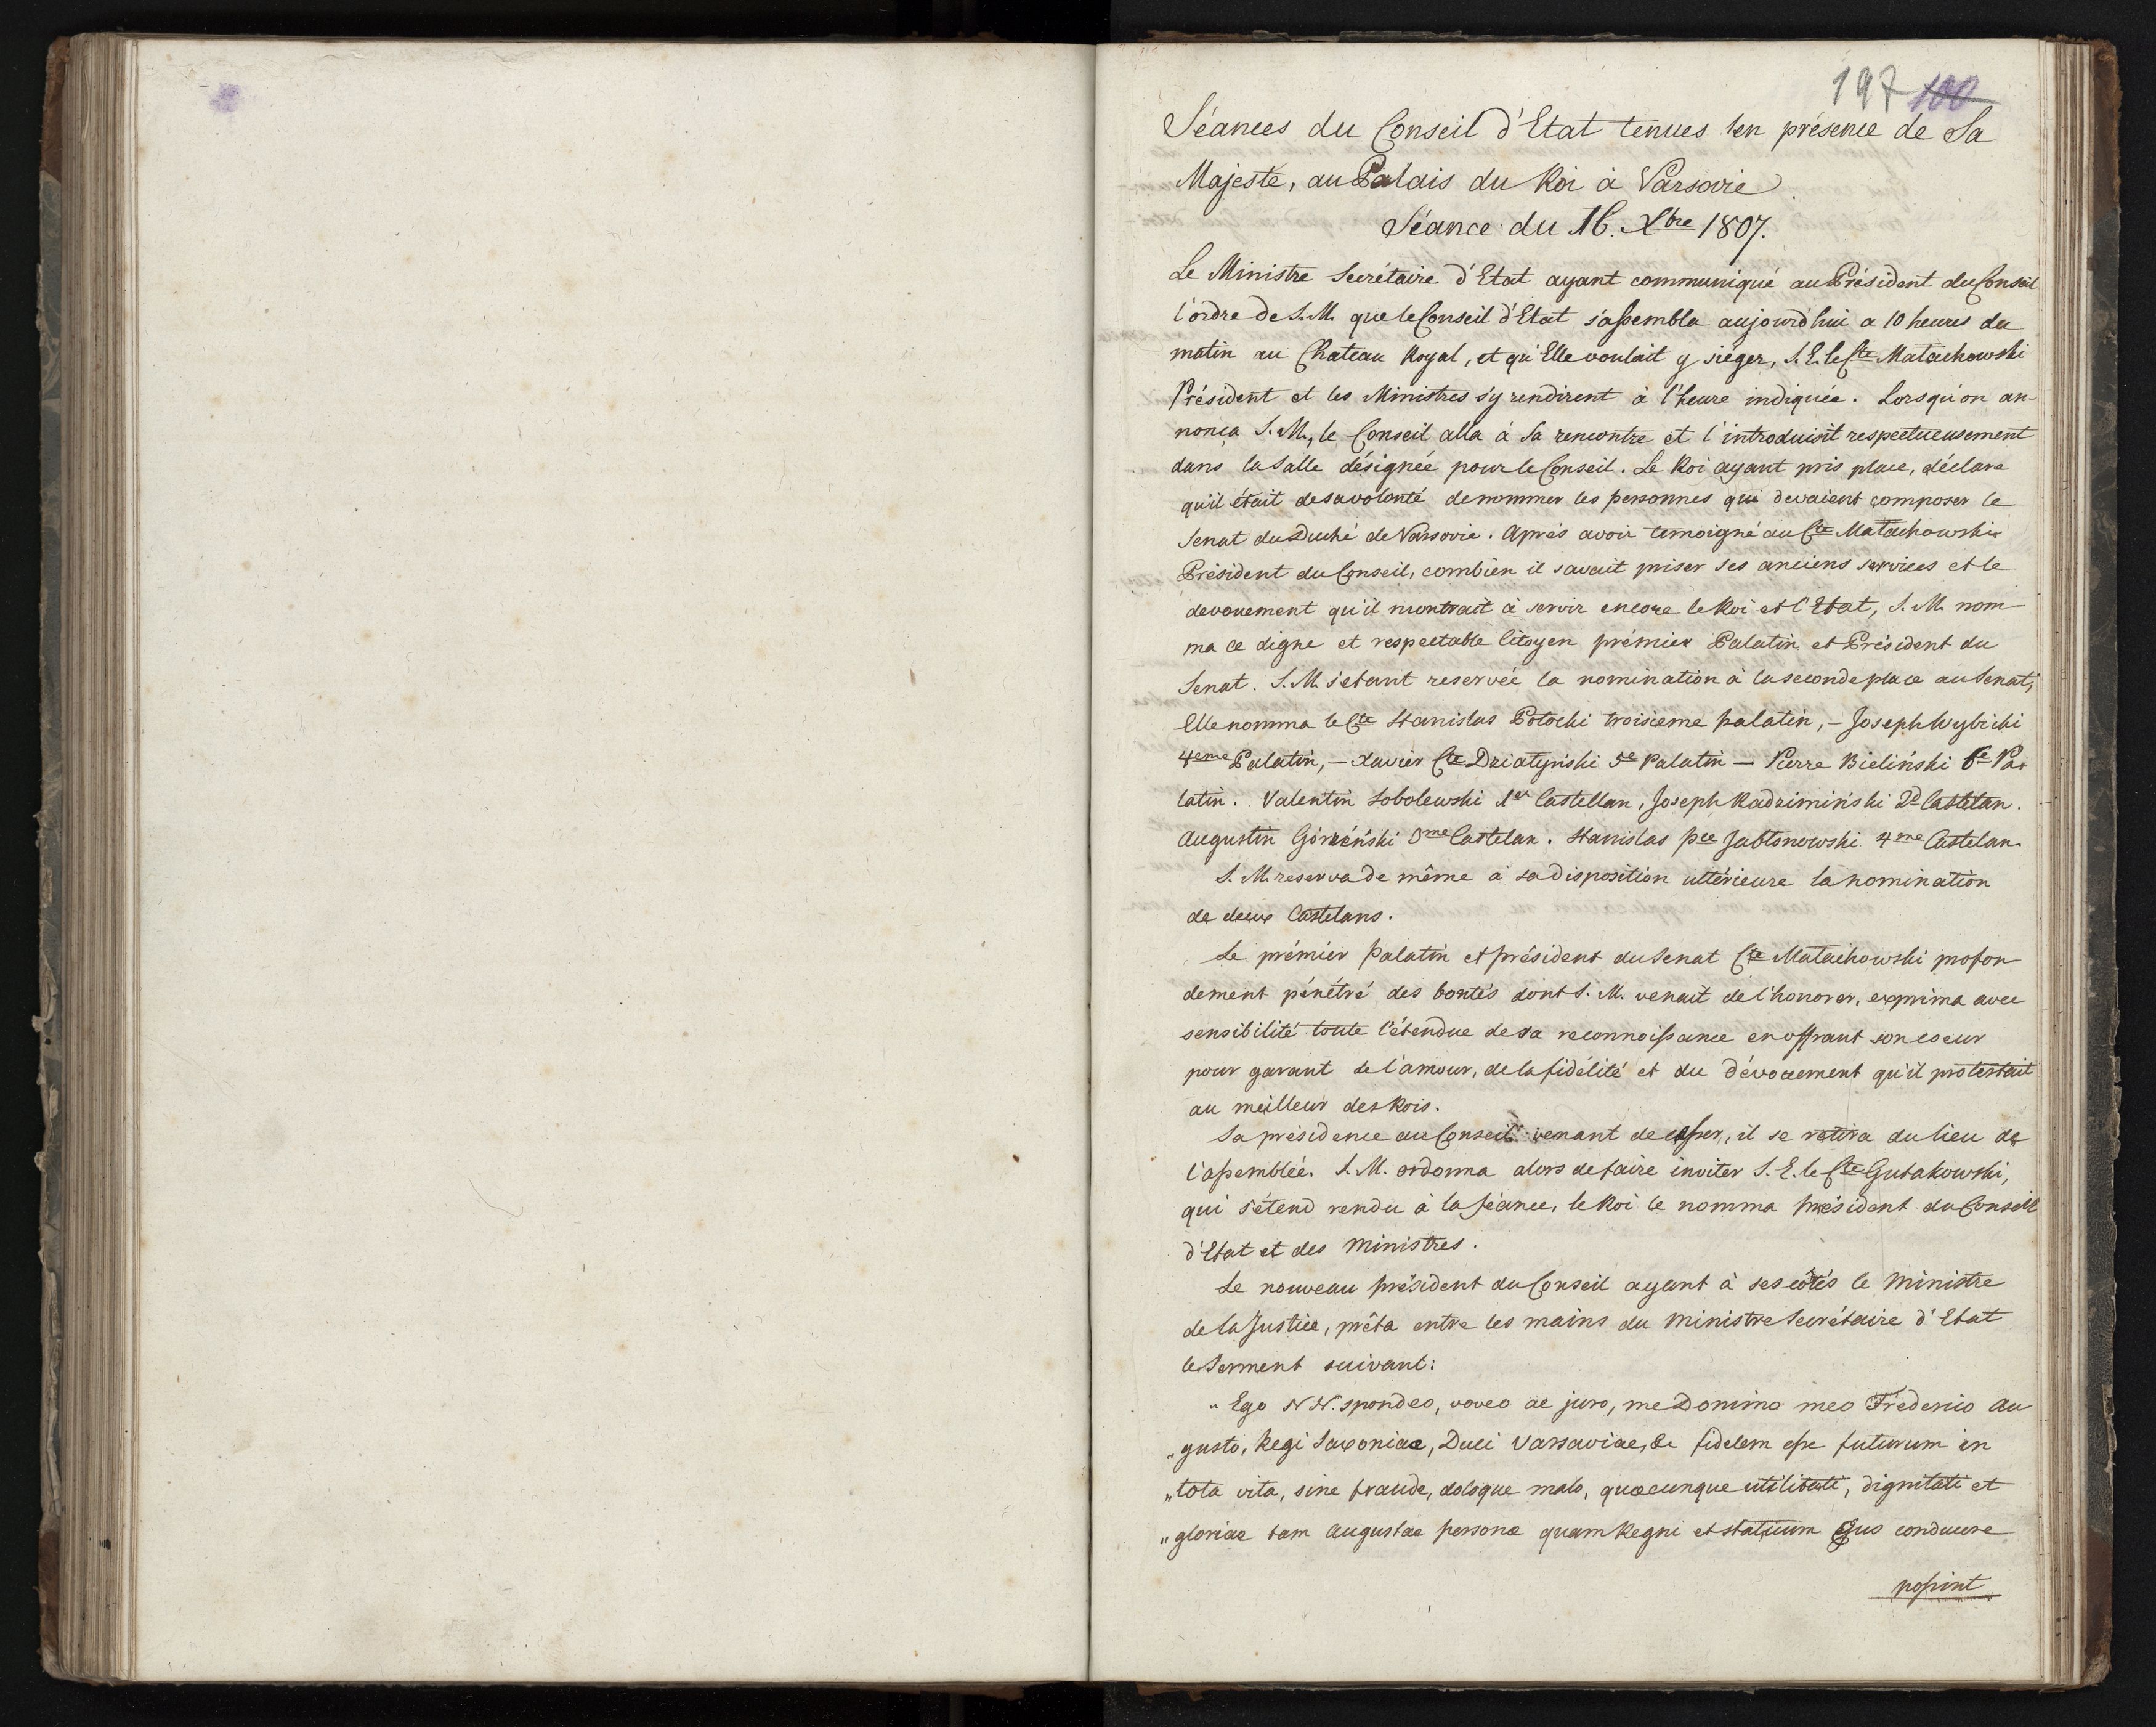 197 100
Séances du Conseil d'Etat tenues en présence de Sa
Majesté, au Palais du Roi à Varsovie
Séance du 16. Xbre 1807.
Le Ministre Secrétaire d'Etat ayant communiqué au Président du Conseil
l'ordre de S. M. que le Conseil d'Etat s'assembla aujourd'hui a 10 heures du
matin au Chateau Royal, et qu'Elle voulait y siéger, S. E. le Cte Małachowski
Président et les Ministres s'y rendirent à l'heure indiquée. Lorsqu'on an-
nonça S. M., le Conseil alla à sa rencontre et l'introduisit respectueusement
dans la Salle désignée pour le Conseil. Le Roi ayant pris place, déclara
qu'il était de sa volonté de nommer les personnes qui devaient composer le
Senat du Duché de Varsovie. Après avoir temoigné au Cte Małachowski
Président du Conseil, combien il savait priser ses anciens services et le
devouement qu'il montrait à servir encore le Roi et l'Etat, S. M. nom-
ma ce digne et respectable Citoyen prémier Palatin et Président du
Senat. S. M. s'etant reservée la nomination à la seconde place au Senat,
Elle nomma le Cte Stanislas Potocki troisieme palatin, — Joseph Wybicki
4eme Palatin, — Xavier Cte Działyński 5e Palatin — Pierre Bieliński 6e Pa-
latin. Valentin Sobolewski 1er Castellan, Joseph Radzimiński 2d Castelan.
Augustin Górzeński 3me Castelan. Stanislas Pce Jabłonowski 4me Castelan.
S. M. reserva de même à sa disposition ultérieure la nomination
de deux Castelans.
Le prémier Palatin et président du Senat Cte Małachowski profon-
dement pénétré des bontés dont S. M. venait de l'honorer, exprima avec
sensibilité toute l'étendue de sa reconnoissance en offrant son coeur
pour garant de l'amour, de la fidélité et du dévouement qu'il protestait
au meilleur des Rois.
Sa présidence au Conseil venant de cesser, il se retira du lieu de
l'assemblée. S. M. ordonna alors de faire inviter S. E. le Cte Gutakowski,
qui s'étend rendu à la séance, le Roi le nomma président du Conseil
d'Etat et des Ministres.
Le nouveau président du Conseil ayant à ses côtés le Ministre
de la Justice, prêta entre les mains du Ministre Secrétaire d'Etat
le Serment suivant:
„ Ego N N. spondeo, voveo ac juro, me Domino meo Frederico Au
„ gusto, Regi Saxoniae, Duci Varsaviae, &c fidelem esse futurum in
„ tota vita, sine fraude, doloque malo, quaecunque utilitati, dignitati et
„ gloriae tam Augustae personae quam Regni et statuum Ejus conducere
possint